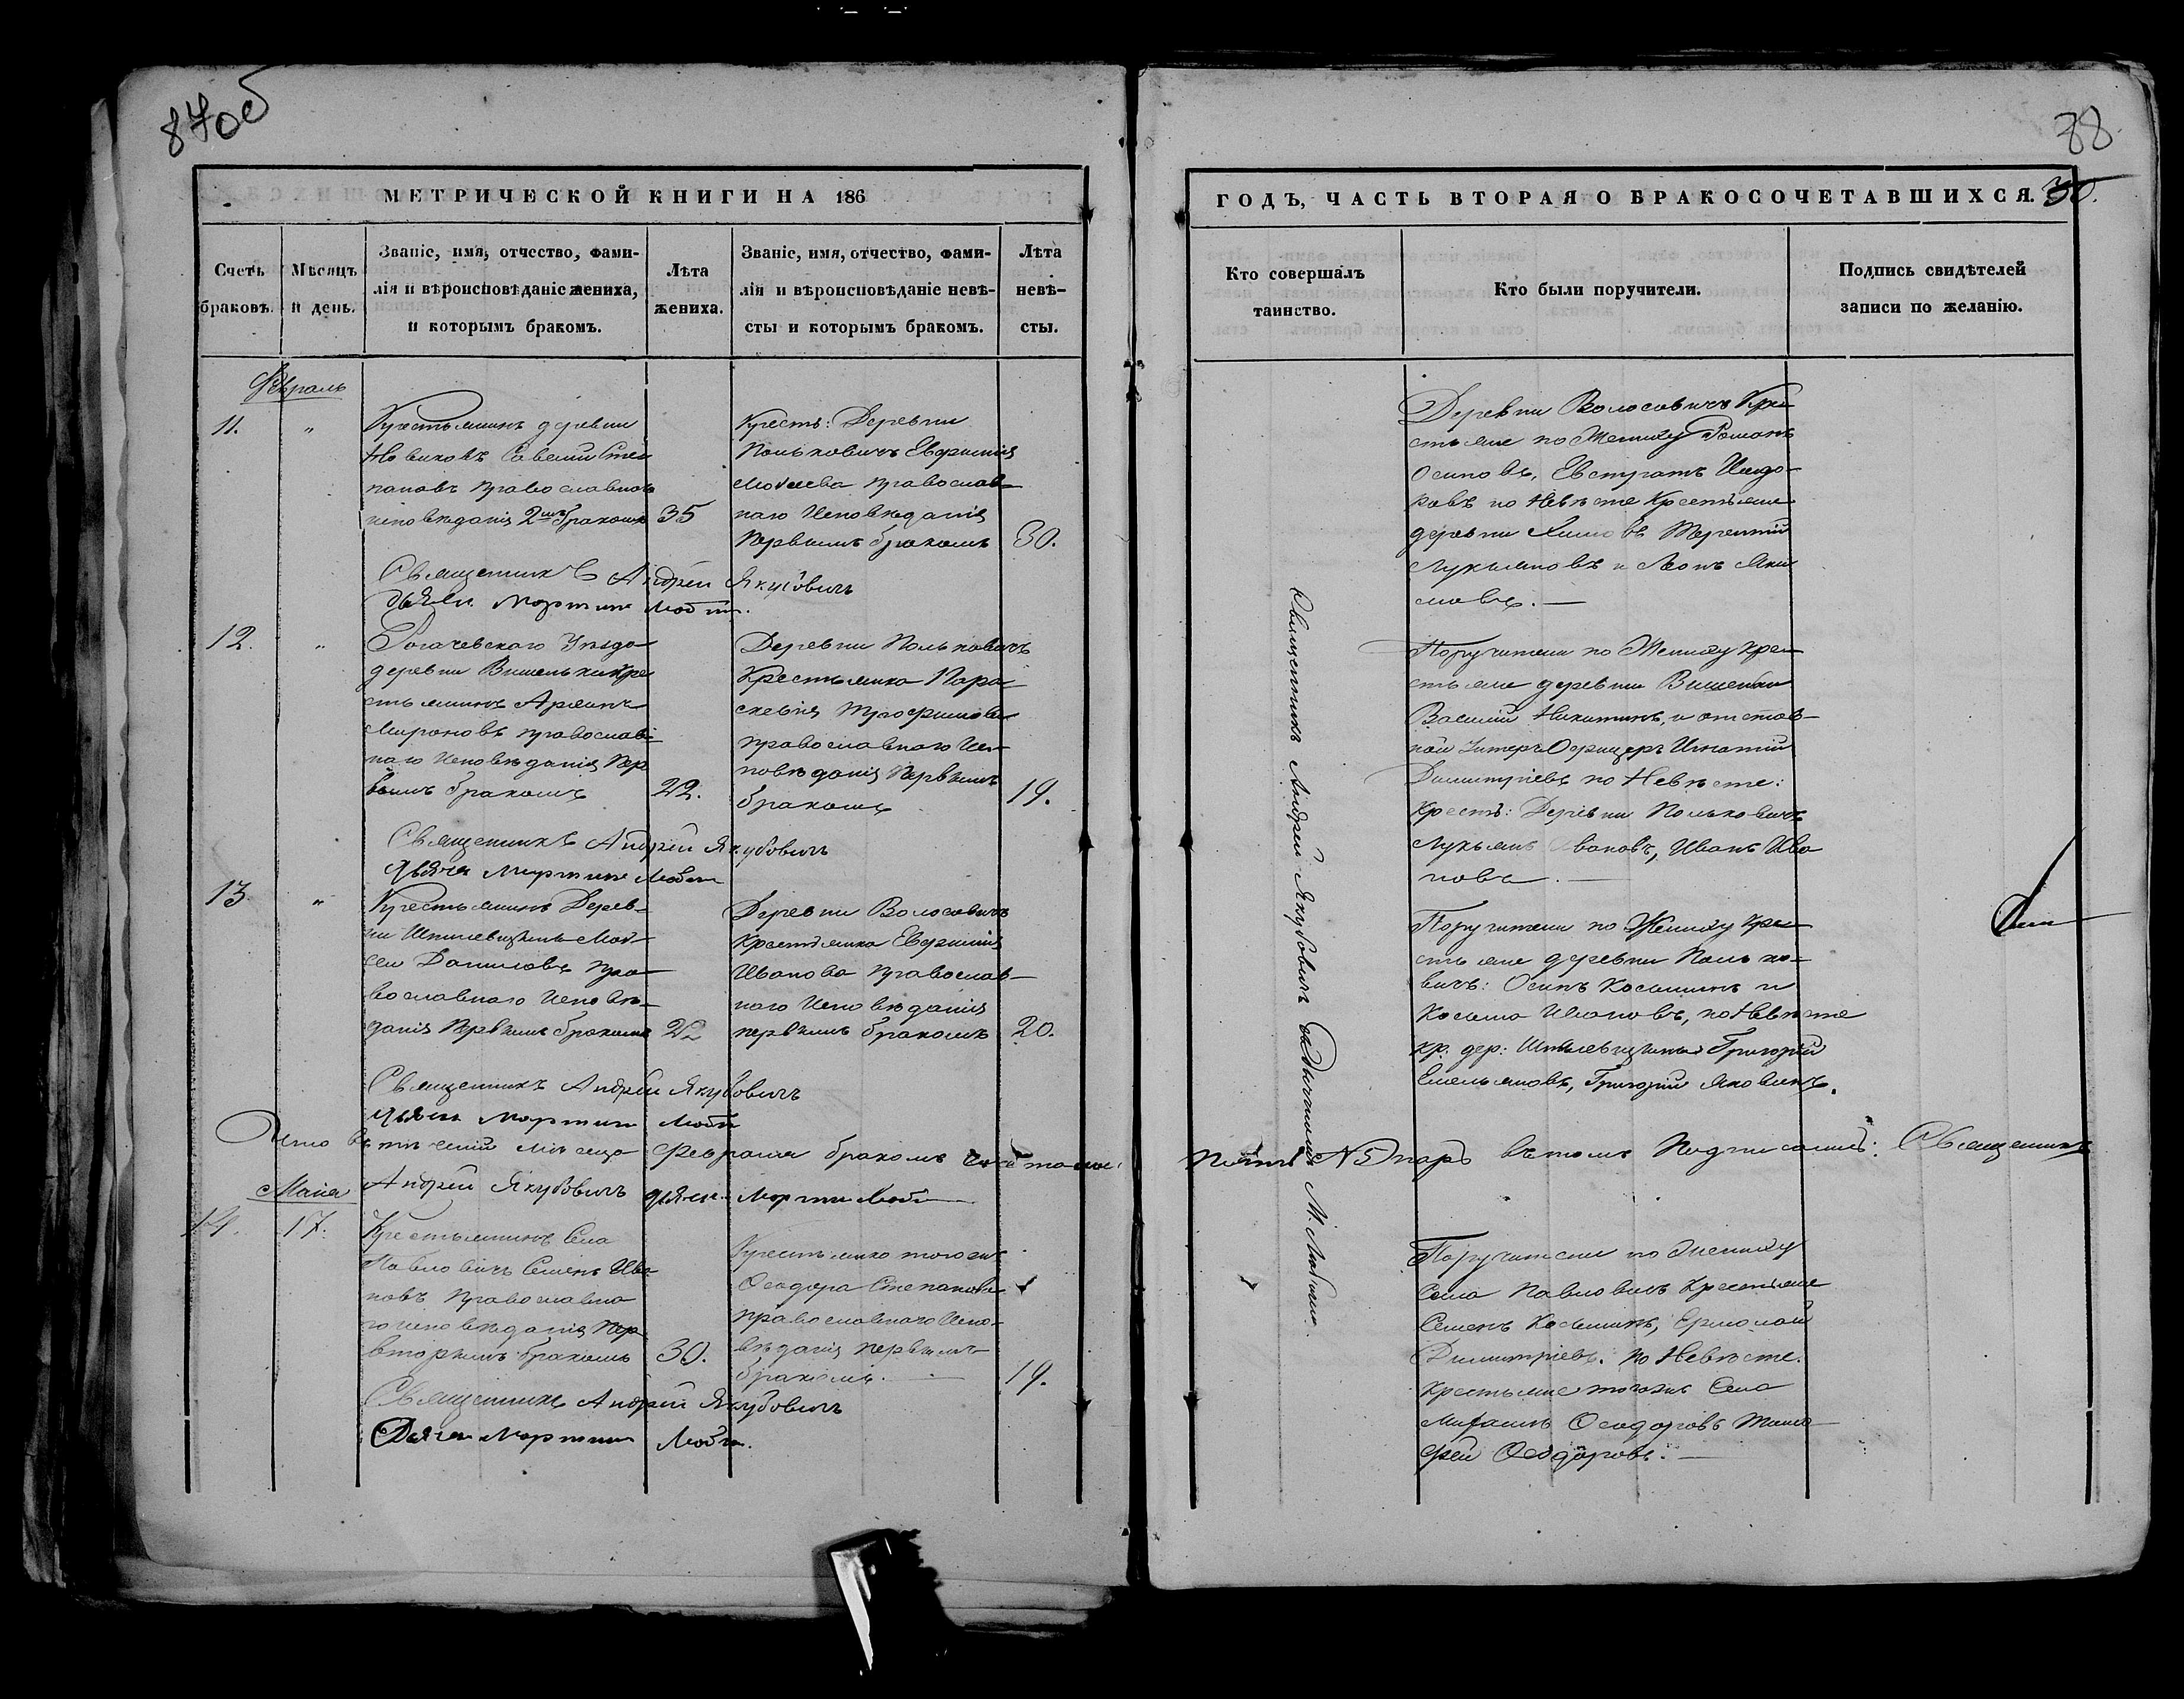 87об
МЕТРИЧЕСКОЙ КНИГИ НА 186
Счетъ браковъ.
Мѣсяцъ и день.
Званіе, имя, отчество, фами-
лія и вѣроисповѣданіе жениха,
и которымъ бракомъ.
Лѣта
жениха.
Званіе, имя, отчество, фами-
лія и вѣроисповѣданіе невѣ-
сты и которымъ бракомъ.
Лѣта
невѣ-
сты.
Февраль
11.
"
Крестьянинъ деревни
Новиковъ Савелій Сте
пановъ православнаго
исповѣданія 2мъ бракомъ
35
Крестъ: Деревни
Польковичъ Евфимія
Моисеева православ-
наго Исповѣданія
первымъ бракомъ
30.
Священникъ Андрей Якубовичъ
Дьячекъ Мартинъ
12.
"
Рогачевскаго Уѣзда
деревни Вишеньки Кре
стьянинъ
Мироновъ православ-
наго Исповѣданія Пер
вымъ бракомъ
22.
Деревни Польковичъ
Крестьянка Пара-
скевія Трофимова
православнаго Ис-
повѣданія Первымъ
бракомъ
19.
Священникъ Андрей Якубовичъ
Дьячекъ Мартинъ
13
"
Крестьянинъ Дерев-
ни
Даниловъ Пра-
вославнаго Исповѣ-
данія Первымъ бракомъ
22
Деревни Волосовичъ
Крестьянка Евфимія
Иванова Православ-
наго Исповѣданія
первымъ бракомъ
20.
Священникъ Андрей Якубовичъ
Дьячекъ Мартинъ
Что въ теченіи мѣсяца Февраля бракомъ
Андрей Якубовичъ Дьячекъ Мартинъ
Маія
14.
17.
Крестьянинъ Села
Павловичъ Семенъ Ива
новъ Православна
го исповѣданія
вторымъ бракомъ
30.
Крестьянка того же
Ѳеодора Степанова
православнаго Испо-
вѣданія первымъ
бракомъ.
19.
Священникъ Андрей Якубовичъ
Дьячекъ Мартинъ
88
ГОДЪ, ЧАСТЬ ВТОРАЯ О БРАКОСОЧЕТАВШИХСЯ.
30.
Кто совершалъ
таинство.
Кто были поручители.
Подпись свидѣтелей
записи по желанію.
Священникъ Андрей Якубовичъ
Деревни Волосовичъ Кре
стьяне по Жениху Романъ
Осиповъ, Евстратъ Исидо-
ровъ по Невѣсте Крестьяне
деревни Терентій
Лукьяновъ и Леонъ Яки
мовъ.
Поручители по Жениху кре-
стьяне деревни Вишеньки
Василій Никитинъ, и отстав-
ной Унтеръ Офицеръ Игнатій
Димитріевъ по Невѣсте:
Крестъ: Деревни Польковичъ
Лукьянъ Ивановъ, Иванъ Ива
новъ.
Поручители по Жениху кре-
стьяне деревни Полько-
вичъ: Осипъ Косьминъ и
Косьма Ивановъ, по Невѣсте
кр. дер: Григорій
Емельяновъ, Григорій Яковлевъ.
паръ въ томъ Подписались: Священникъ
Поручители по Жениху
Села Павловичъ Крестьяне
Семенъ Косьминъ, Ермолай
Димитріевъ. по Невѣсте.
Крестьяне тогожъ Села
Ѳеодоровъ Тимо-
фей Ѳеодоровъ.